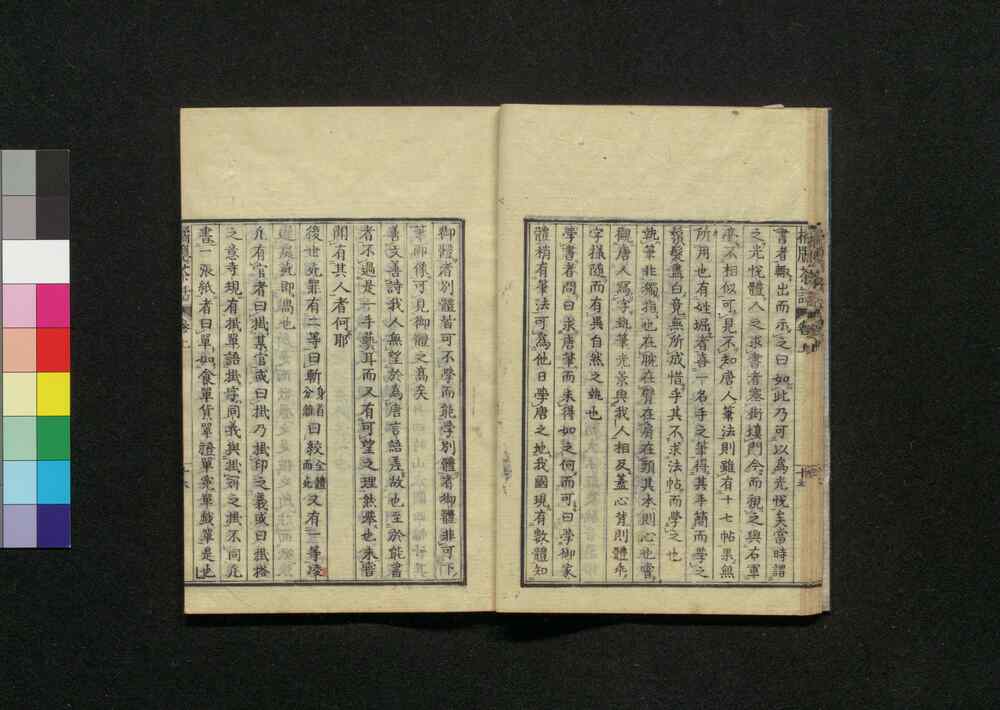 橘牕茶話 卷上 十五
書者輙出而示之曰如此乃可以爲光悅矣當時謂
之光悅體人之求書者塞街塡門今而視之與右軍
豪不相似可見不知唐人筆法則雖有十七帖果無
所用也有姓堀者喜一名手之筆得其手簡而學之
鬚髮盡白竟無所成惜乎其不求法帖而學之也
執筆非獨指也在腕在臂在肩在頸其本則心也嘗
觀唐人寫字執筆光景與我人相反蓋心背則體乖
字樣隨而有異自然之勢也
學書者問曰求唐筆而未得如之何而可曰學御家
體稍有筆法可爲他日學唐之地我國現有數體知
御體者別體皆可不學而能學別體者御體非可下
筆卽像可見御體之高矣
善文善詩我人無望於爲唐言語差故也至於能書
者不過是一手藝耳而又有可望之理然噪也未嘗
聞有其人者何耶
後世死罪有二等曰斬身首分離曰絞全體而死又有一等
之意寺規有掛單語掛字同義與掛剣之掛不同凡
凡有官者曰掛某官或曰掛乃掛印之義或曰掛搭
書一張紙者曰單如食單貨單證單案單戲單是也
橘牕茶話 卷上 十六